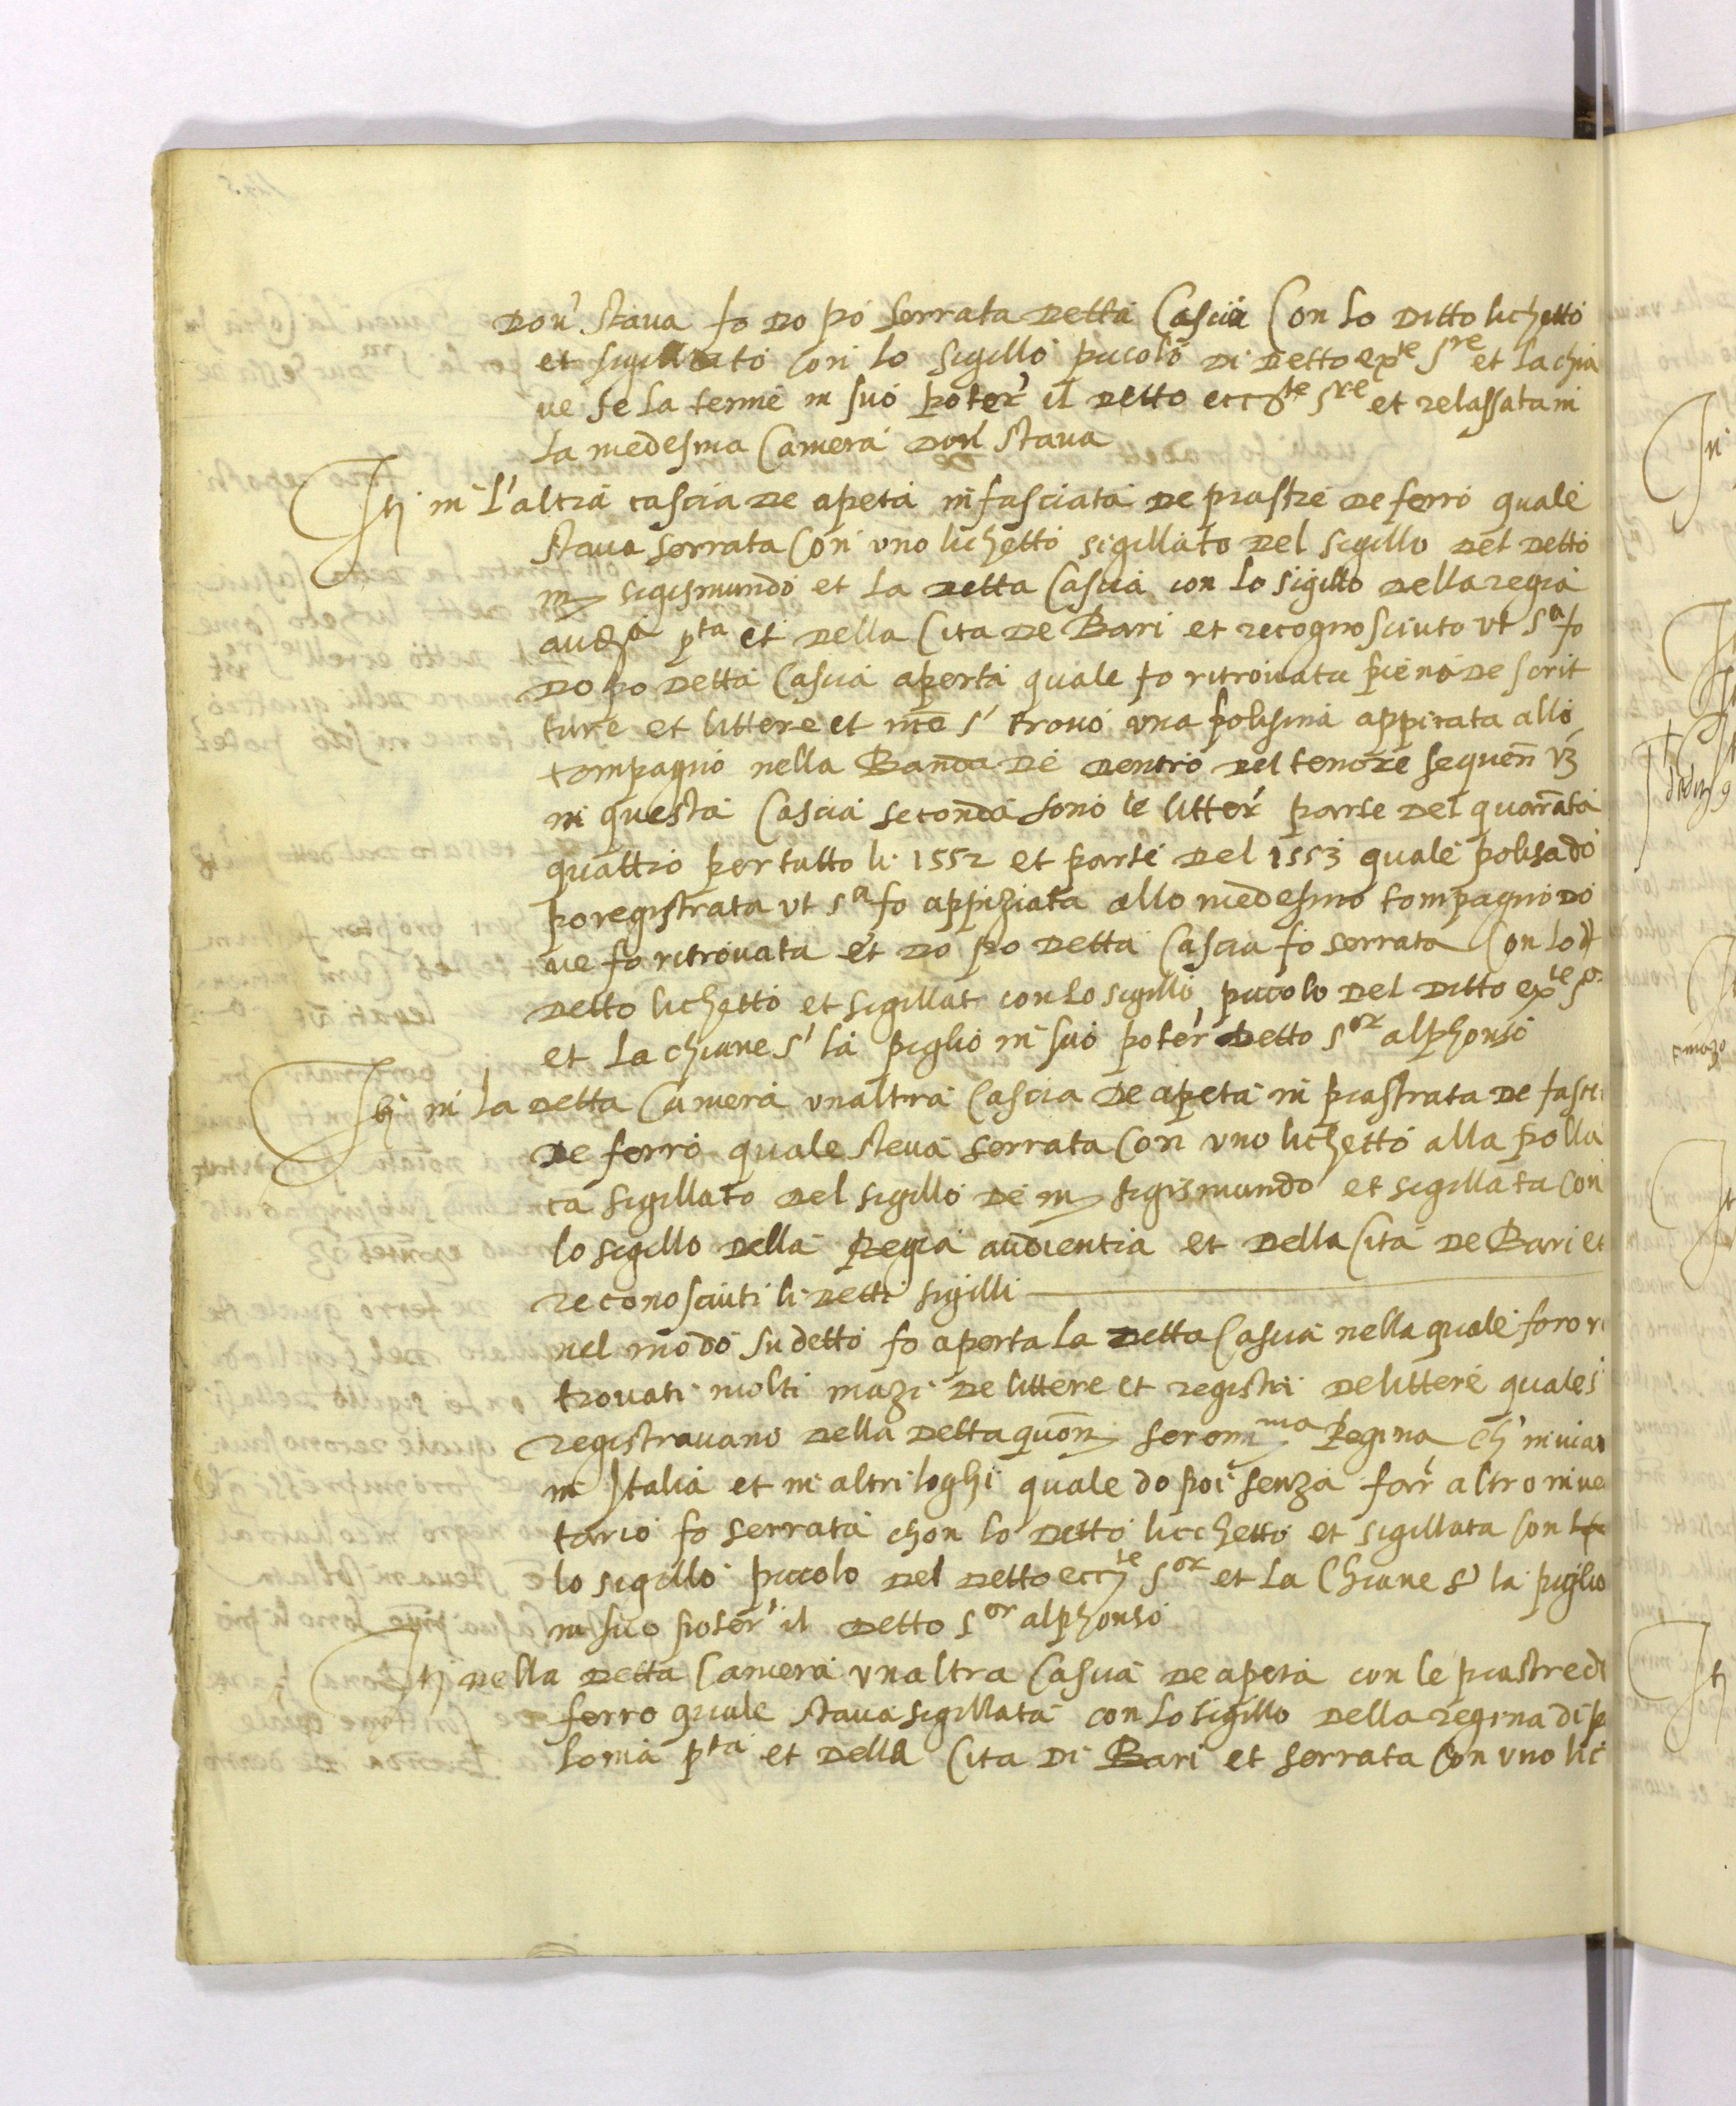 Don' staua fo do po serrata detta Cascia Con lo ditto lichetto
et sigillato con lo sigillo picolo di detto ex.te s.re et la chia
ue se la tenne in suo poter' il detto ecc.te s.re et relassata in
la medesma Camera don' staua
It in l'altra cascia de apeta infasciata de piastre de ferro quale
staua serrata Con uno lichetto sigillato del sigillo del detto
m sigismundo et la detta Cascia con lo sigillo della regia
aud.a p.ta et della Cita de Bari et recognosciuto ut s.a fo
do po detta Cascia aperta quale fo ritrouata piena de scrit
ture et littere et s' trouò una polisina appicata allo
tompagno nella Banda de dentro del tenore sequen vz
in questa Cascia seconda sono le litter' parte del quaranta
quattro per tutto li 1552 et parte del 1553 quale polisa do
po registrata ut s.a fo appiziata allo medesmo tompagno do
ue fo ritrouata et do po detta Cascia fo serrata Con lo
detto lichetto et sigillat con lo sigillo picolo del ditto ex.te s.or
et la chiaue s' la piglio in suo poter' detto s.or alphonso
It in la detta Camera unaltra Cascia de apeta in piastrata de fasce
de ferro quale steua serrata Con uno lichetto alla polla
ca sigillato del sigillo de m sigismundo et sigillata con
lo sigillo della Regia audientia et della Cita de Bari et
reconosciuti li detti sigilli
nel modo sudetto fo aperta la detta Cascia nella quale foro ri
trouati molti mazi de littere et registri de littere quale s
registrauano della detta quon seren.ma Regina ch' inuiau
in Italia et in altri loghi quale do poi senza far' altro inue
tario fo serrata chon lo detto licchetto et sigillata con
lo sigillo picolo del detto ecc.te s.or et la Chiaue s' la piglio
in suo poter' il detto s.or alphonso
It nella detta Camera unaltra Cascia de apeta con le piastre di
ferro quale staua sigillata con lo sigillo della regina di po
lonia p.ta et della Cita di Bari et serrata Con uno lic